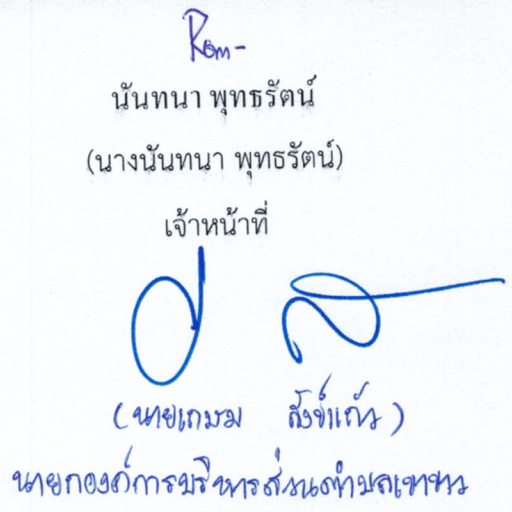 นันทนา พุทธรัตน์
(นางนันทนา พุทธรัตน์)
เจ้าหน้าที่
(นายเกษม
นายกองค์การบริหารส่วนตำบลเขาขาว